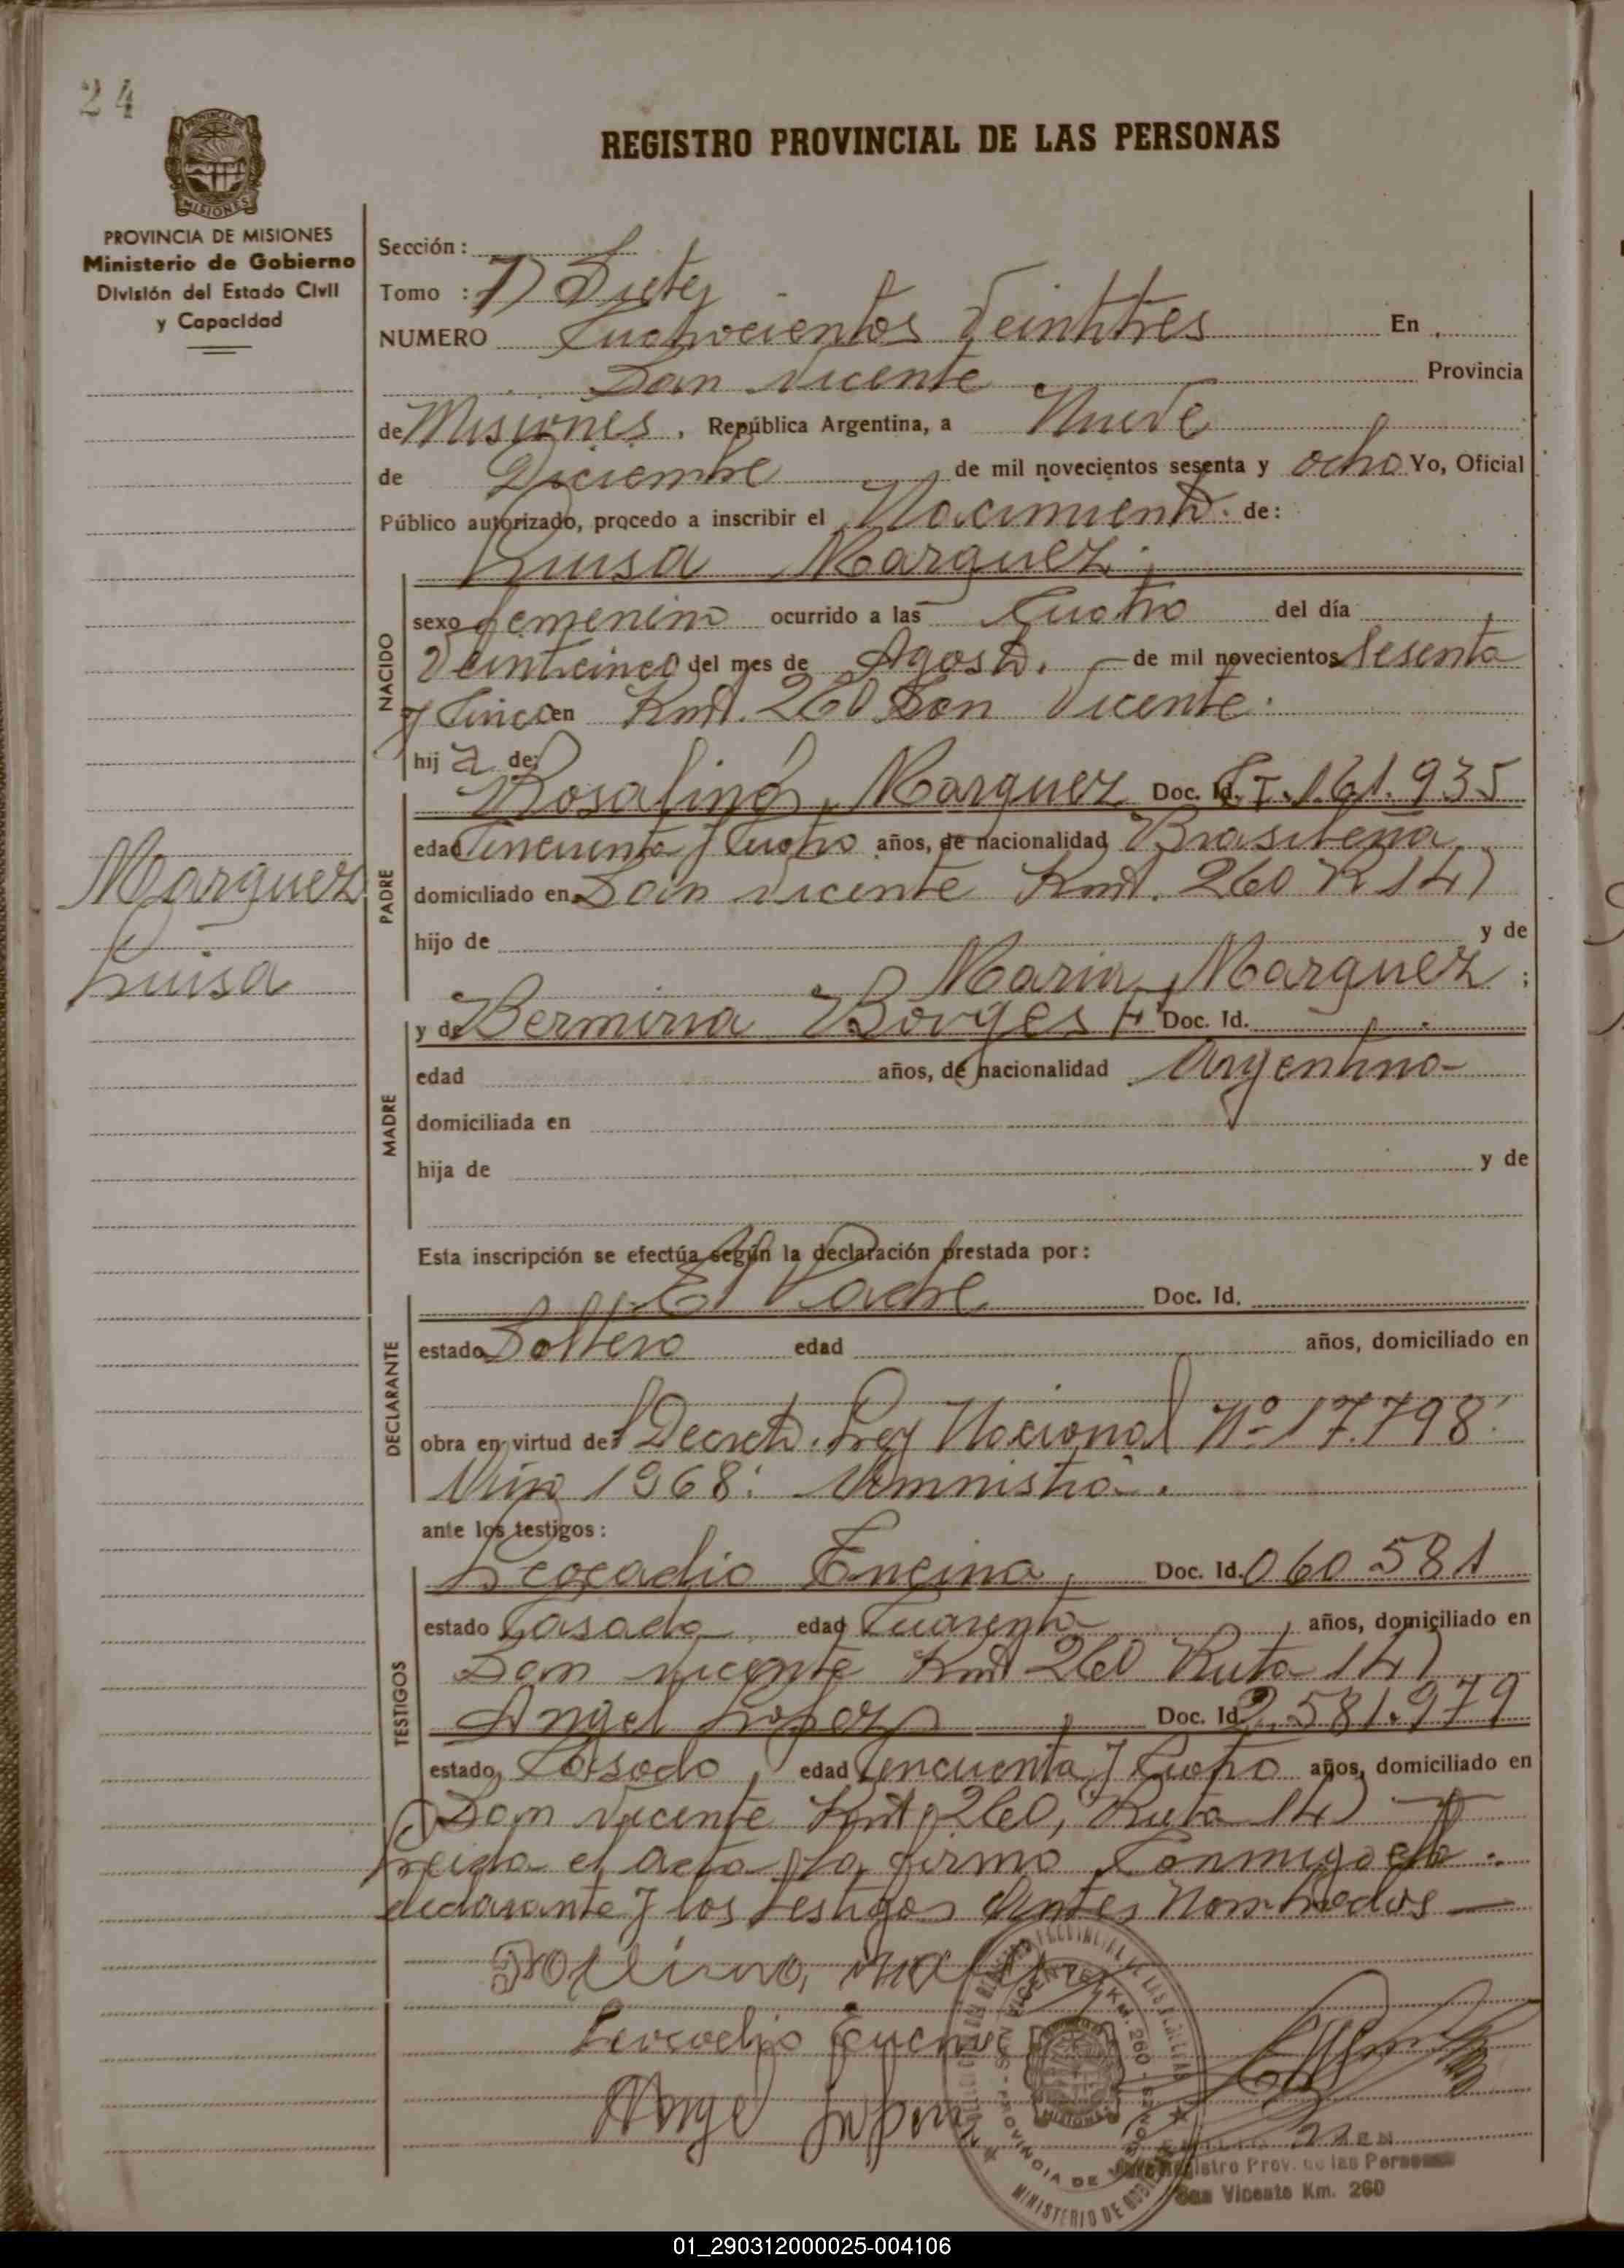 24
REGISTRO PROVINCIAL DE LAS PERSONAS
PROVINCIA DE MISIONES
Ministerio de Gobierno
División del Estado Civil
y Capacidad
Sección:
Tomo : 7) Siete
NUMERO Cuatrocientos Veintitres En
San Vicente Provincia
de Misiones, República Argentina, a Nueve
de Diciembre de mil novecientos sesenta y ocho Yo, Oficial
Público autorizado, procedo a inscribir el Nacimiento de:
Luisa Marquez
NACIDO
sexo femenino ocurrido a las Cuatro del día
Veinticinco del mes de Agosto de mil novecientos Sesenta
y Cinco en Kmt. 260 San Vicente.
hija de:
Rosalino Marquez Doc. Id. C.I. 161.935
PADRE
edad Cincuenta y Cuatro años, de nacionalidad Brasileña
domiciliado en San Vicente Kmt. 260 R 14)
hijo de y de
Maria Marquez ;
Marquez
Luisa
y de Bermiria Borges Doc. Id.
MADRE
edad años, de nacionalidad Argentina
domiciliada en
hija de y de
Esta inscripción se efectúa según la declaración prestada por:
El Padre Doc. Id.
DECLARANTE
estado Soltero edad años, domiciliado en
obra en virtud del Decreto Ley Nacional Nº 17.798
1968: Amnistia.
ante los testigos:
TESTIGOS
Leocadio Encina, Doc. Id. 060.581
estado Casado edad Cuarenta años, domiciliado en
San Vicente Kmt 260 Ruta 14)
Angel Lopez Doc. Id. 2.581.979
estado Casado, edad Cincuenta y Cuatro años, domiciliado en
San Vicente Kmt 260, Ruta 14)
Leida el acta la firma Conmigo el
declarante y los testigos Antes Nombrados
Leocadio Encina
Angel Lopez
MISIONES
MINISTERIO DE GOBIERNO
Registro Prov. de las Personas
San Vicente Km. 260
01_290312000025-004106